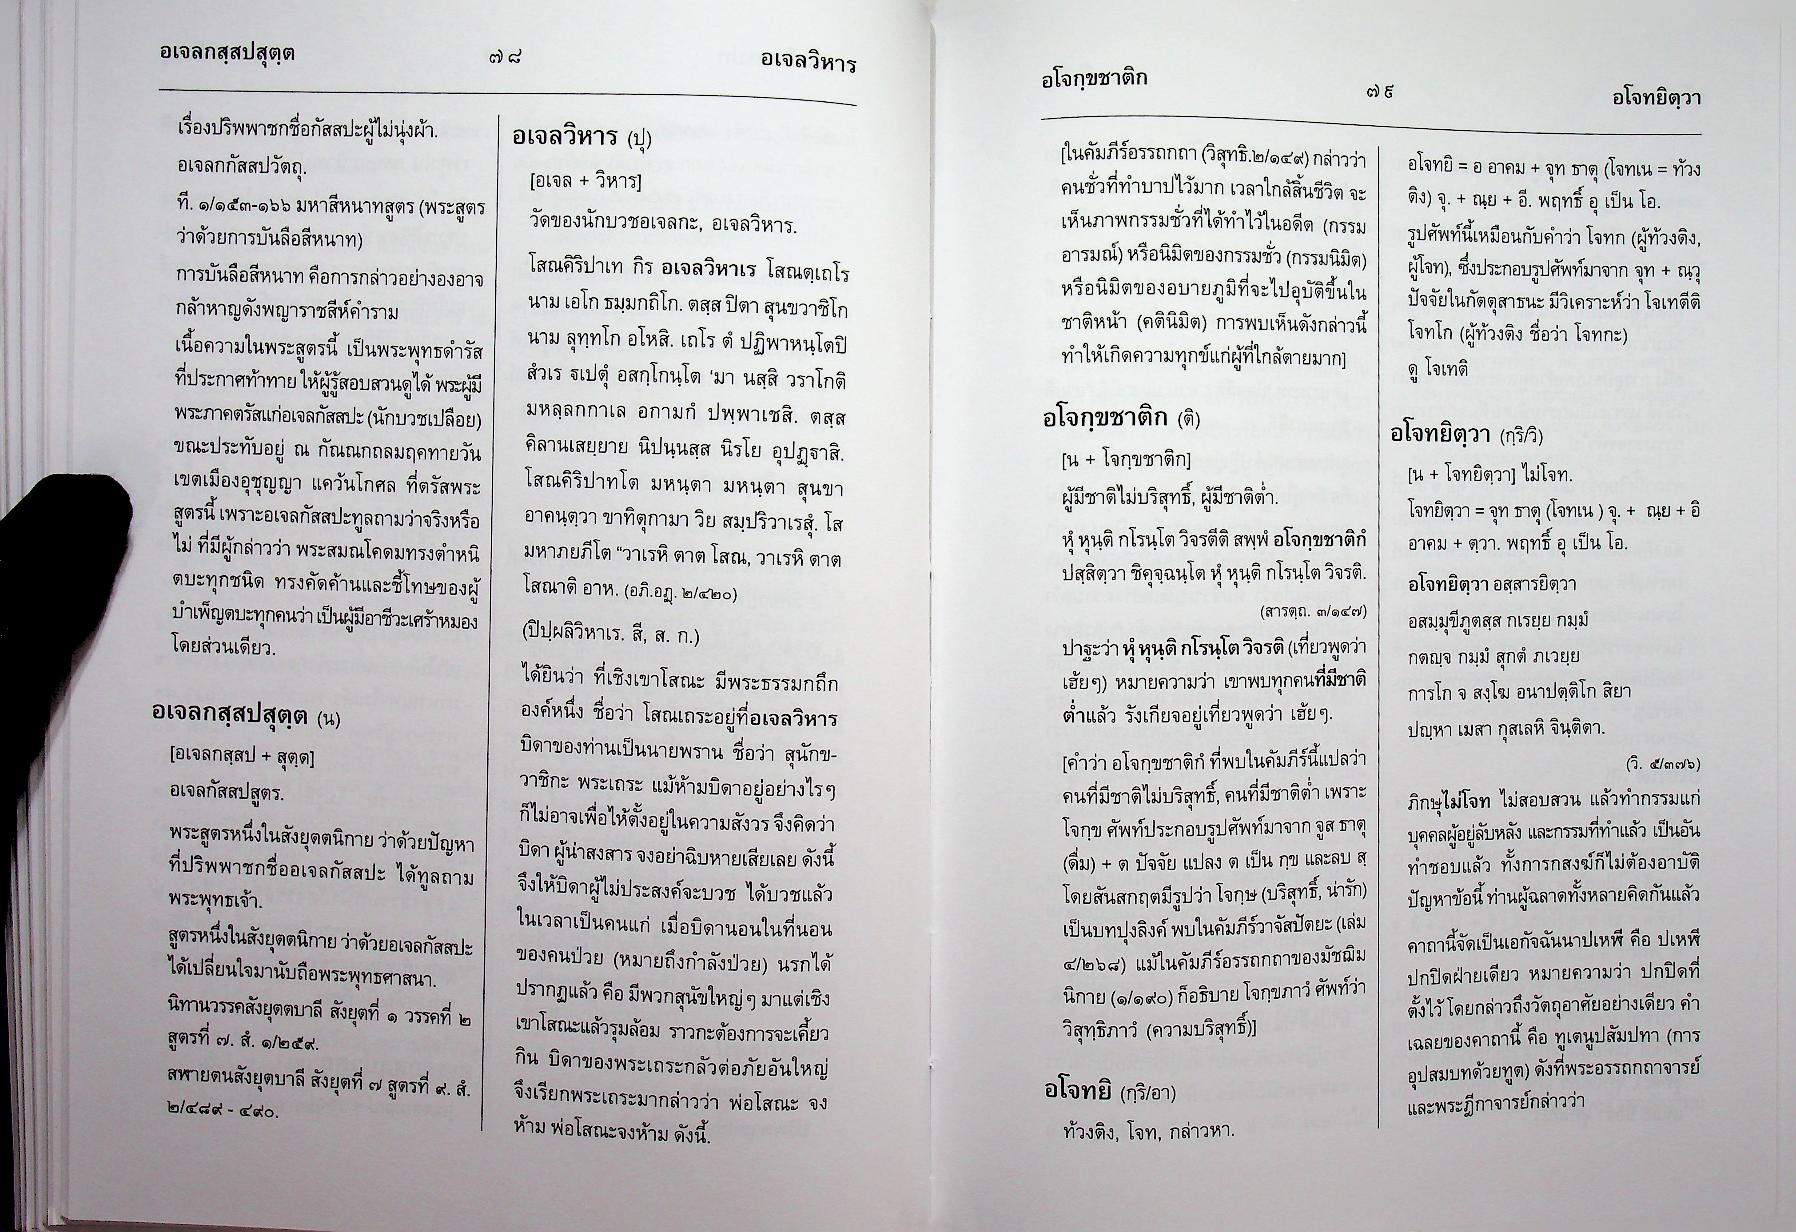 อเจลกสฺสปสุตฺต
๗๘
อเจลวิหาร
เรื่องปริพพาชกชื่อกัสสปะผู้ไม่นุ่งผ้า.
อเจลกกัสสปวัตถุ.
ที. ๑/๑๕๓-๑๖๖ มหาสีหนาทสูตร (พระสูตร
ว่าด้วยการบันลือสีหนาท)
การบันลือสีหนาท คือการกล่าวอย่างองอาจ
กล้าหาญดังพญาราชสีห์คำราม
เนื้อความในพระสูตรนี้ เป็นพระพุทธดำรัส
ที่ประกาศท้าทาย ให้ผู้รู้สอบสวนดูได้ พระผู้มี
พระภาคตรัสแก่อเจลกัสสปะ (นักบวชเปลือย)
ขณะประทับอยู่ ณ กัณณกถลมฤคทายวัน
เขตเมืองอุชุญญา แคว้นโกศล ที่ตรัสพระ
สูตรนี้ เพราะอเจลกัสสปะทูลถามว่าจริงหรือ
ไม่ ที่มีผู้กล่าวว่า พระสมณโคดมทรงตำหนิ
ตบะทุกชนิด ทรงคัดค้านและชี้โทษของผู้
บำเพ็ญตบะทุกคนว่า เป็นผู้มีอาชีวะเศร้าหมอง
โดยส่วนเดียว.
อเจลกสฺสปสุตฺต (น)
[อเจลกสฺสป + สุตฺต]
อเจลกัสสปสูตร.
พระสูตรหนึ่งในสังยุตตนิกาย ว่าด้วยปัญหา
ที่ปริพพาชกชื่ออเจลกัสสปะ ได้ทูลถาม
พระพุทธเจ้า.
สูตรหนึ่งในสังยุตตนิกาย ว่าด้วยอเจลกัสสปะ
ได้เปลี่ยนใจมานับถือพระพุทธศาสนา.
นิทานวรรคสังยุตตบาลี สังยุตที่ ๑ วรรคที่ ๒
สูตรที่ ๗. สํ. ๑/๒๕๙.
สฬายตนสังยุตบาลี สังยุตที่ ๗ สูตรที่ ๙. สํ.
๒/๔๘๙ - ๔๙๐.
อเจลวิหาร (ปุ)
[อเจล + วิหาร]
วัดของนักบวชอเจลกะ, อเจลวิหาร.
โสณคิริปาเท กิร อเจลวิหาเร โสณตฺเถโร
นาม เอโก ธมฺมกถิโก. ตสฺส ปิตา สุนขวาชิโก
นาม ลุทฺทโก อโหสิ. เถโร ตํ ปฏิพาหนฺโตปิ
สํวเร ฐเปตุํ อสกฺโกนฺโต ‘มา นสฺสิ วราโกติ
มหลฺลกกาเล อกามกํ ปพฺพาเชสิ. ตสฺส
คิลานเสยฺยาย นิปนฺนสฺส นิรโย อุปฏฺฐาสิ.
โสณคิริปาทโต มหนฺตา มหนฺตา สุนขา
อาคนฺตฺวา ขาทิตุกามา วิย สมฺปริวาเรสุํ. โส
มหาภยภีโต “วาเรหิ ตาต โสณ, วาเรหิ ตาต
โสณาติ อาห. (อภิ.อฏฺ. ๒/๔๒๐)
(ปิปฺผลิวิหาเร. สี, ส. ก.)
ได้ยินว่า ที่เชิงเขาโสณะ มีพระธรรมกถึก
องค์หนึ่ง ชื่อว่า โสณเถระอยู่ที่อเจลวิหาร
บิดาของท่านเป็นนายพราน ชื่อว่า สุนักข-
วาชิกะ พระเถระ แม้ห้ามบิดาอยู่อย่างไรๆ
ก็ไม่อาจเพื่อให้ตั้งอยู่ในความสังวร จึงคิดว่า
บิดา ผู้น่าสงสาร จงอย่าฉิบหายเสียเลย ดังนี้
จึงให้บิดาผู้ไม่ประสงค์จะบวช ได้บวชแล้ว
ในเวลาเป็นคนแก่ เมื่อบิดานอนในที่นอน
ของคนป่วย (หมายถึงกำลังป่วย) นรกได้
ปรากฏแล้ว คือ มีพวกสุนัขใหญ่ๆ มาแต่เชิง
เขาโสณะแล้วรุมล้อม ราวกะต้องการจะเคี้ยว
กิน บิดาของพระเถระกลัวต่อภัยอันใหญ่
จึงเรียกพระเถระมากล่าวว่า พ่อโสณะ จง
ห้าม พ่อโสณะจงห้าม ดังนี้.
อโจกฺขชาติก
๗๙
อโจทยิตฺวา
[ในคัมภีร์อรรถกถา (วิสุทธิ.๒/๑๔๙) กล่าวว่า
คนชั่วที่ทำบาปไว้มาก เวลาใกล้สิ้นชีวิต จะ
เห็นภาพกรรมชั่วที่ได้ทำไว้ในอดีต (กรรม
อารมณ์) หรือนิมิตของกรรมชั่ว (กรรมนิมิต)
หรือนิมิตของอบายภูมิที่จะไปอุบัติขึ้นใน
ชาติหน้า (คตินิมิต) การพบเห็นดังกล่าวนี้
ทำให้เกิดความทุกข์แก่ผู้ที่ใกล้ตายมาก]
อโจกฺขชาติก (ติ)
[น + โจกฺขชาติก]
ผู้มีชาติไม่บริสุทธิ์, ผู้มีชาติต่ำ.
หุํ หุนฺติ กโรนฺโต วิจรตีติ สพฺพํ อโจกฺขชาติกํ
ปสฺสิตฺวา ชิคุจฺฉนฺโต หุํ หุนฺติ กโรนฺโต วิจรติ.
(สารตฺถ. ๓/๑๔๗)
ปาฐะว่า หุํ หุนฺติ กโรนฺโต วิจรติ (เที่ยวพูดว่า
เฮ้ยๆ) หมายความว่า เขาพบทุกคนที่มีชาติ
ต่ำแล้ว รังเกียจอยู่เที่ยวพูดว่า เฮ้ยๆ.
[คำว่า อโจกฺขชาติกํ ที่พบในคัมภีร์นี้แปลว่า
คนที่มีชาติไม่บริสุทธิ์, คนที่มีชาติต่ำ เพราะ
โจกฺข ศัพท์ประกอบรูปศัพท์มาจาก จูส ธาตุ
(ดื่ม) + ต ปัจจัย แปลง ต เป็น กฺข และลบ สฺ
โดยสันสกฤตมีรูปว่า โจกฺษ (บริสุทธิ์, น่ารัก)
เป็นบทปุงลิงค์ พบในคัมภีร์วาจัสปัตยะ (เล่ม
๔/๒๖๘) แม้ในคัมภีร์อรรถกถาของมัชฌิม
นิกาย (๑/๑๙๐) ก็อธิบาย โจกฺขภาวํ ศัพท์ว่า
วิสุทฺธิภาวํ (ความบริสุทธิ์)]
อโจทยิ (กฺริ/อา)
ท้วงติง, โจท, กล่าวหา.
อโจทยิ = อ อาคม + จุท ธาตุ (โจทเน = ท้วง
ติง) จุ. + ณฺย + อี. พฤทธิ์ อุ เป็น โอ.
รูปศัพท์นี้เหมือนกับคำว่า โจทก (ผู้ท้วงติง,
ผู้โจท), ซึ่งประกอบรูปศัพท์มาจาก จุท + ณฺวุ
ปัจจัยในกัตตุสาธนะ มีวิเคราะห์ว่า โจเทตีติ
โจทโก (ผู้ท้วงติง ชื่อว่า โจทกะ)
ดู โจเทติ
อโจทยิตฺวา (กฺริ/วิ)
[น + โจทยิตฺวา] ไม่โจท.
โจทยิตฺวา = จุท ธาตุ (โจทเน ) จุ. + ณฺย + อิ
อาคม + ตฺวา. พฤทธิ์ อุ เป็น โอ.
อโจทยิตฺวา อสฺสารยิตฺวา
อสมฺมุขีภูตสฺส กเรยฺย กมฺมํ
กตญฺจ กมฺมํ สุกตํ ภเวยฺย
การโก จ สงฺโฆ อนาปตฺติโก สิยา
ปญฺหา เมสา กุสเลหิ จินฺติตา.
(วิ. ๕/๓๗๖)
ภิกษุไม่โจท ไม่สอบสวน แล้วทำกรรมแก่
บุคคลผู้อยู่ลับหลัง และกรรมที่ทำแล้ว เป็นอัน
ทำชอบแล้ว ทั้งการกสงฆ์ก็ไม่ต้องอาบัติ
ปัญหาข้อนี้ ท่านผู้ฉลาดทั้งหลายคิดกันแล้ว
คาถานี้จัดเป็นเอกัจฉันนาปเหฬี คือ ปเหฬี
ปกปิดฝ่ายเดียว หมายความว่า ปกปิดที่
ตั้งไว้ โดยกล่าวถึงวัตถุอาศัยอย่างเดียว คำ
เฉลยของคาถานี้ คือ ทูเตนูปสัมปทา (การ
อุปสมบทด้วยทูต) ดังที่พระอรรถกถาจารย์
และพระฎีกาจารย์กล่าวว่า